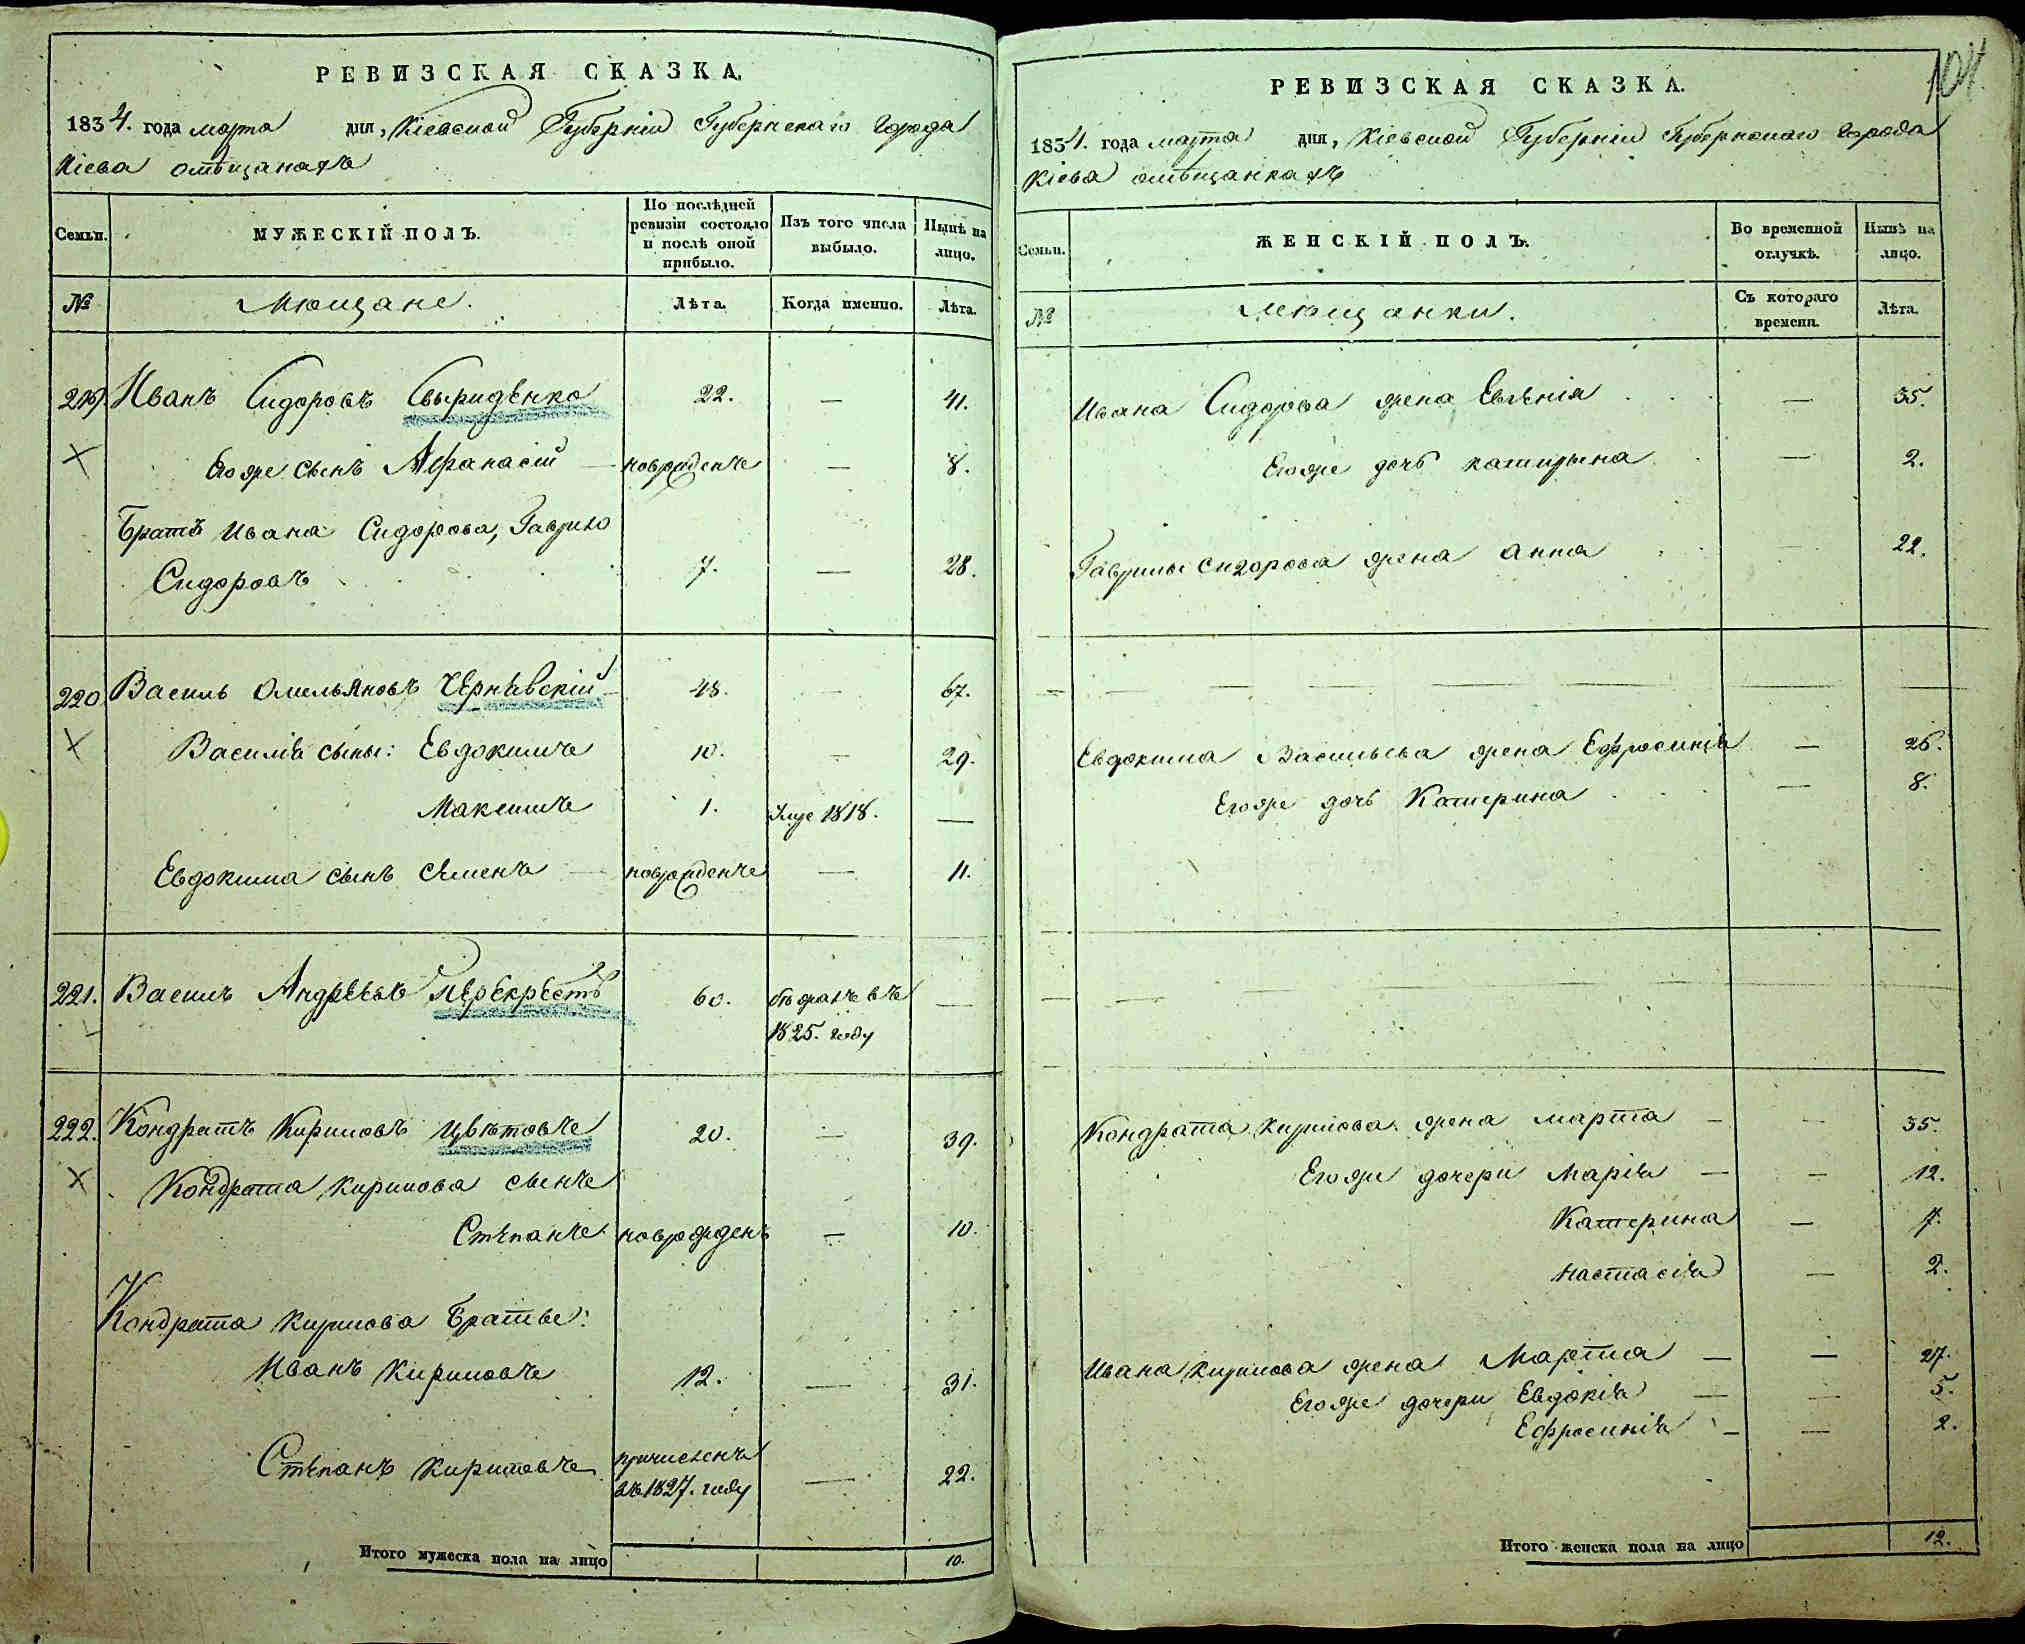 РЕВИЗСКАЯ СКАЗКА.
1834. года марта дня, Кіевской Губерніи Губернскаго города
Кіева омѣщанахъ
Семьи.
МУЖЕСКІЙ ПОЛЪ.
По послѣдней ревизіи состояло и послѣ оной прибыло.
Изъ того числа выбыло.
Нынѣ на лицо.
№
Мѣщане.
Лѣта.
Когда именно.
Лѣта.
219. Иванъ Сидоровъ Свириденко 22. — 41.
Егоже сынъ Афанасій — новрожденъ — 8.
Братъ Ивана Сидорова, Гаврило
Сидоровъ 7. — 28.
220 Василь Омельяновъ Чернѣвскій 48. — 67.
Василія сыны: Евдокимъ 10. — 29.
Максимъ 1. Умре 1818. —
Евдокима сынъ Семенъ — новрожденъ — 11.
221. Василь Андреевъ Перекрестъ 60. бѣжалъ въ —
1825. году
222. Кондратъ Кириловъ Цвѣтовъ 20. — 39.
Кондрата Кирилова сынъ
Степанъ новрожденъ — 10.
Кондрата Кирилова братье:
Иванъ Кириловъ 12. — 31.
Степанъ Кириловъ причисленъ — 22.
въ 1827. году
Итого мужеска пола на лицо 10.
104.
РЕВИЗСКАЯ СКАЗКА.
1834. года марта дня, Кіевской Губерніи Губернскаго города
Кіева омѣщанкахъ
Семьи.
ЖЕНСКІЙ ПОЛЪ.
Во временной отлучкѣ.
Нынѣ на лицо.
№
Мѣщанки.
Съ котораго времени.
Лѣта.
Ивана Сидорова жена Евгенія — 35.
Егоже дочь катирына — 2.
Гаврилы Сидорова жена анна — 22.
Евдокима Васильева жена Ефросинія — 26.
Егоже дочь Катерина — 8.
Кондрата Кирилова жена марта — — 35.
Егоже дочери Марія — — 12.
Катерина — 7.
Настасія — 2.
Ивана Кирилова жена Марта — — 27.
Егоже дочери Евдокія — — 5.
Ефросинія — — 2.
Итого женска пола на лицо 12.